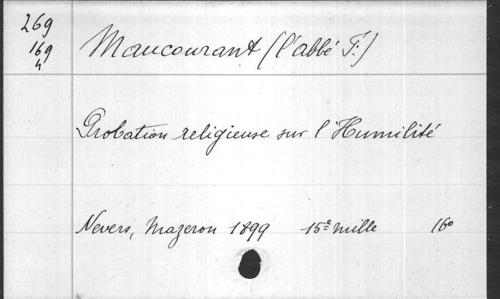 269
169
4
Maucourant (l'abbé F.)
Probation religieuse sur l'Humilité
Nevers, Mazeron 1899 15e mille 16o